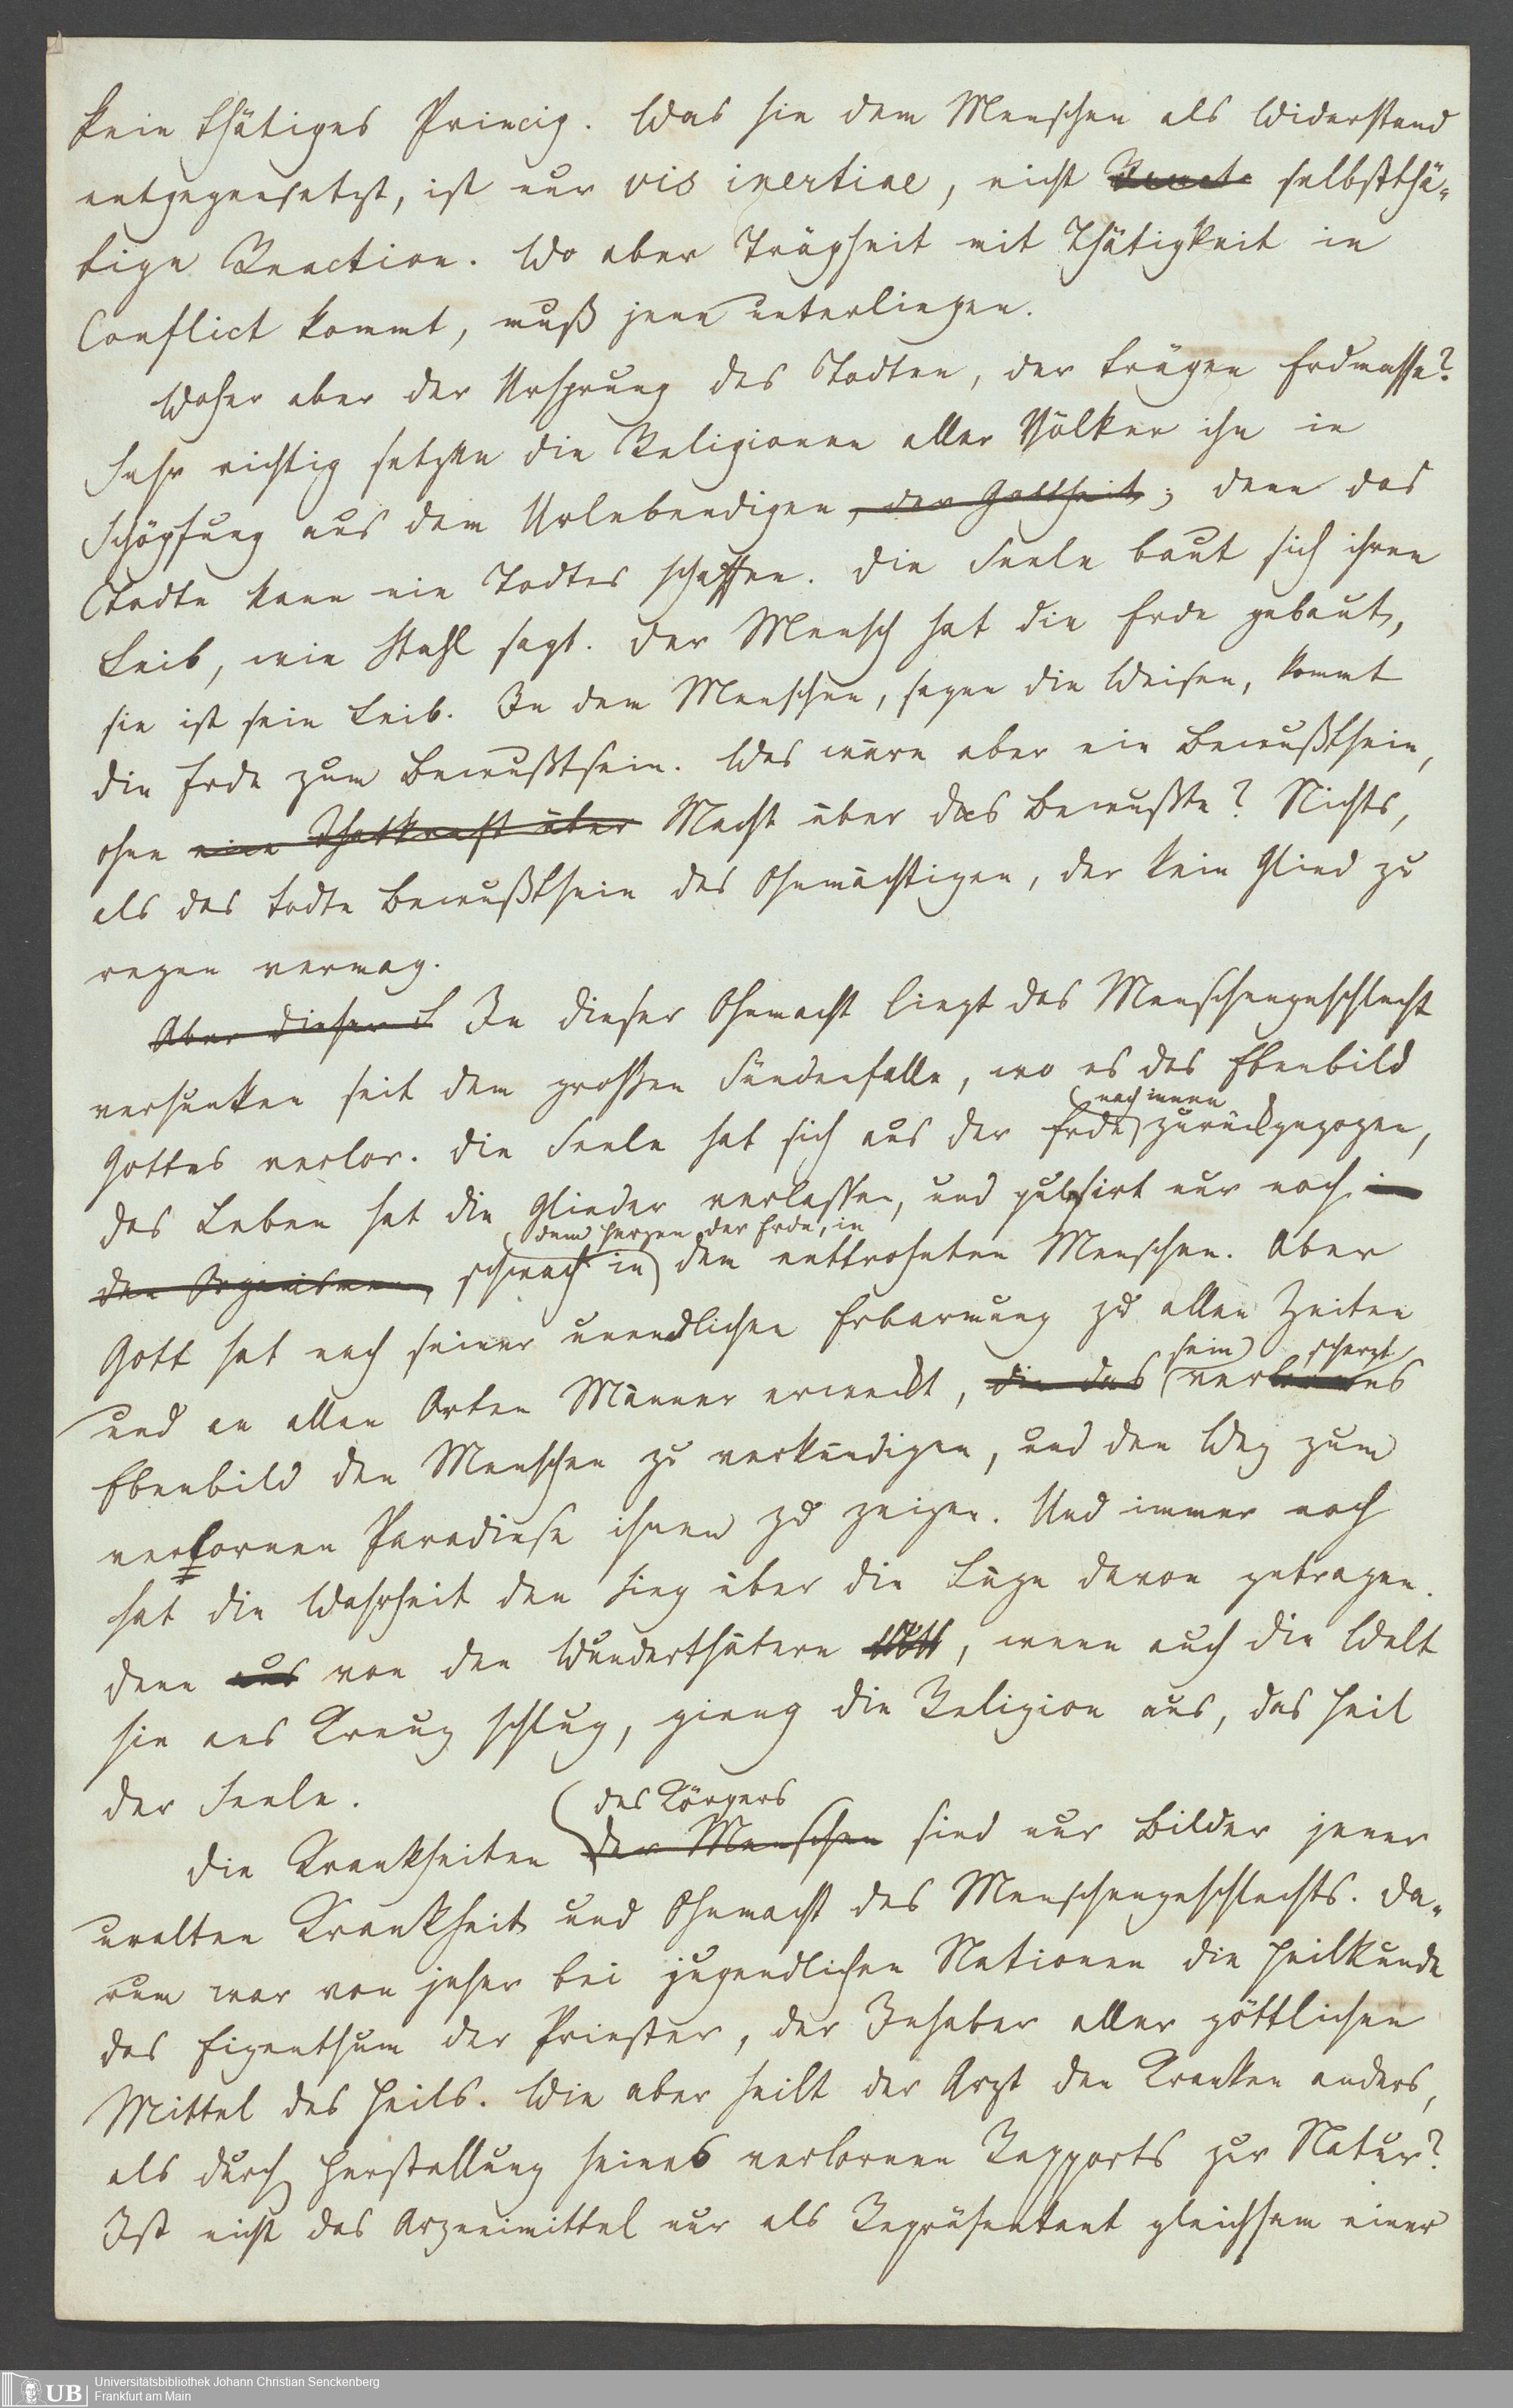 kein thätiges Princip. Was sie dem Menschen als Widerstand
entgegensetzt, ist nur vis inertiae, nicht React selbstthä-
tige Reaction. Wo aber Trägheit mit Thätigkeit in
Conflict kommt, muß jene unterliegen.
Woher aber der Ursprung des Todten, der trägen Erdmasse?
Sehr richtig setzten die Religionen aller Völker ihn in
Schöpfung aus dem Urlebendigen, der Gottheit; denn das
Todte kann nie Todtes schaffen. Die Seele baut sich ihren
Leib, wie Stahl sagt. Der Mensch hat die Erde gebaut,
sie ist sein Leib. In dem Menschen, sagen die Weisen, kommt
die Erde zum Bewußtsein. Was wäre aber ein Bewußtsein,
ohne eine Thatkraft über Macht über das Bewußte? Nichts,
als das todte Bewußtsein des Ohnmächtigen, der kein Glied zu
regen vermag.
Aber dieser S In dieser Ohnmacht liegt das Menschengeschlecht
versunken seit dem großen Sündenfalle, wo es das Ebenbild
nach innen
Gottes verlor. Die Seele hat sich aus der Erde zurückgezogen,
das Leben hat die Glieder verlassen, und pulsirt nur noch in
dem Herzen der Erde, in
den Organismen, schwach in dem entthronten Menschen. Aber
Gott hat nach seiner unendlichen Erbarmung zu allen Zeiten
sein scherzt
und an allen Orten Männer erweckt, die das verlornes
Ebenbild den Menschen zu verkündigen, und den Weg zum
verlornen Paradiese ihnen zu zeigen. Und immer noch
hat die Wahrheit den Sieg über die Lüge davon getragen.
Denn aus von den Wunderthätern, wenn auch die Welt
sie ans Kreuz schlug, gieng die Religion aus, das Heil
der Seele.
des Körpers
Die Krankheiten der Menschen sind nur Bilder jener
uralten Krankheit und Ohnmacht des Menschengeschlechts. Da-
rum war von jeher bei jugendlichen Nationen die Heilkunde
das Eigenthum der Priester, der Inhaber aller göttlichen
Mittel des Heils. Wie aber heilt der Arzt den Kranken anders,
als durch Herstellung seines verlornen Rapports zur Natur?
Ist nicht das Arzneimittel nur als Repräsentant gleichsam einer
UB Universitätsbibliothek Johann Christian Senckenberg
Frankfurt am Main